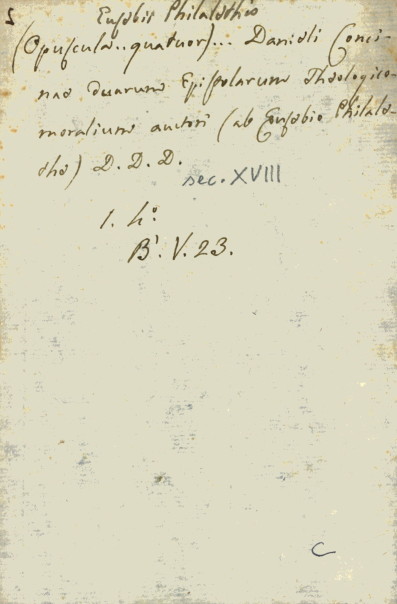 S
Eusebii Philalethis
(Opuscula.. quatuor)... Danieli Conci-
nae duarum Epistolarum Theologico
moralium auctori (ab Eusebio Philale-
the) D. D. D.
sec. XVIII
1. 4º
B¹. V. 23.
C